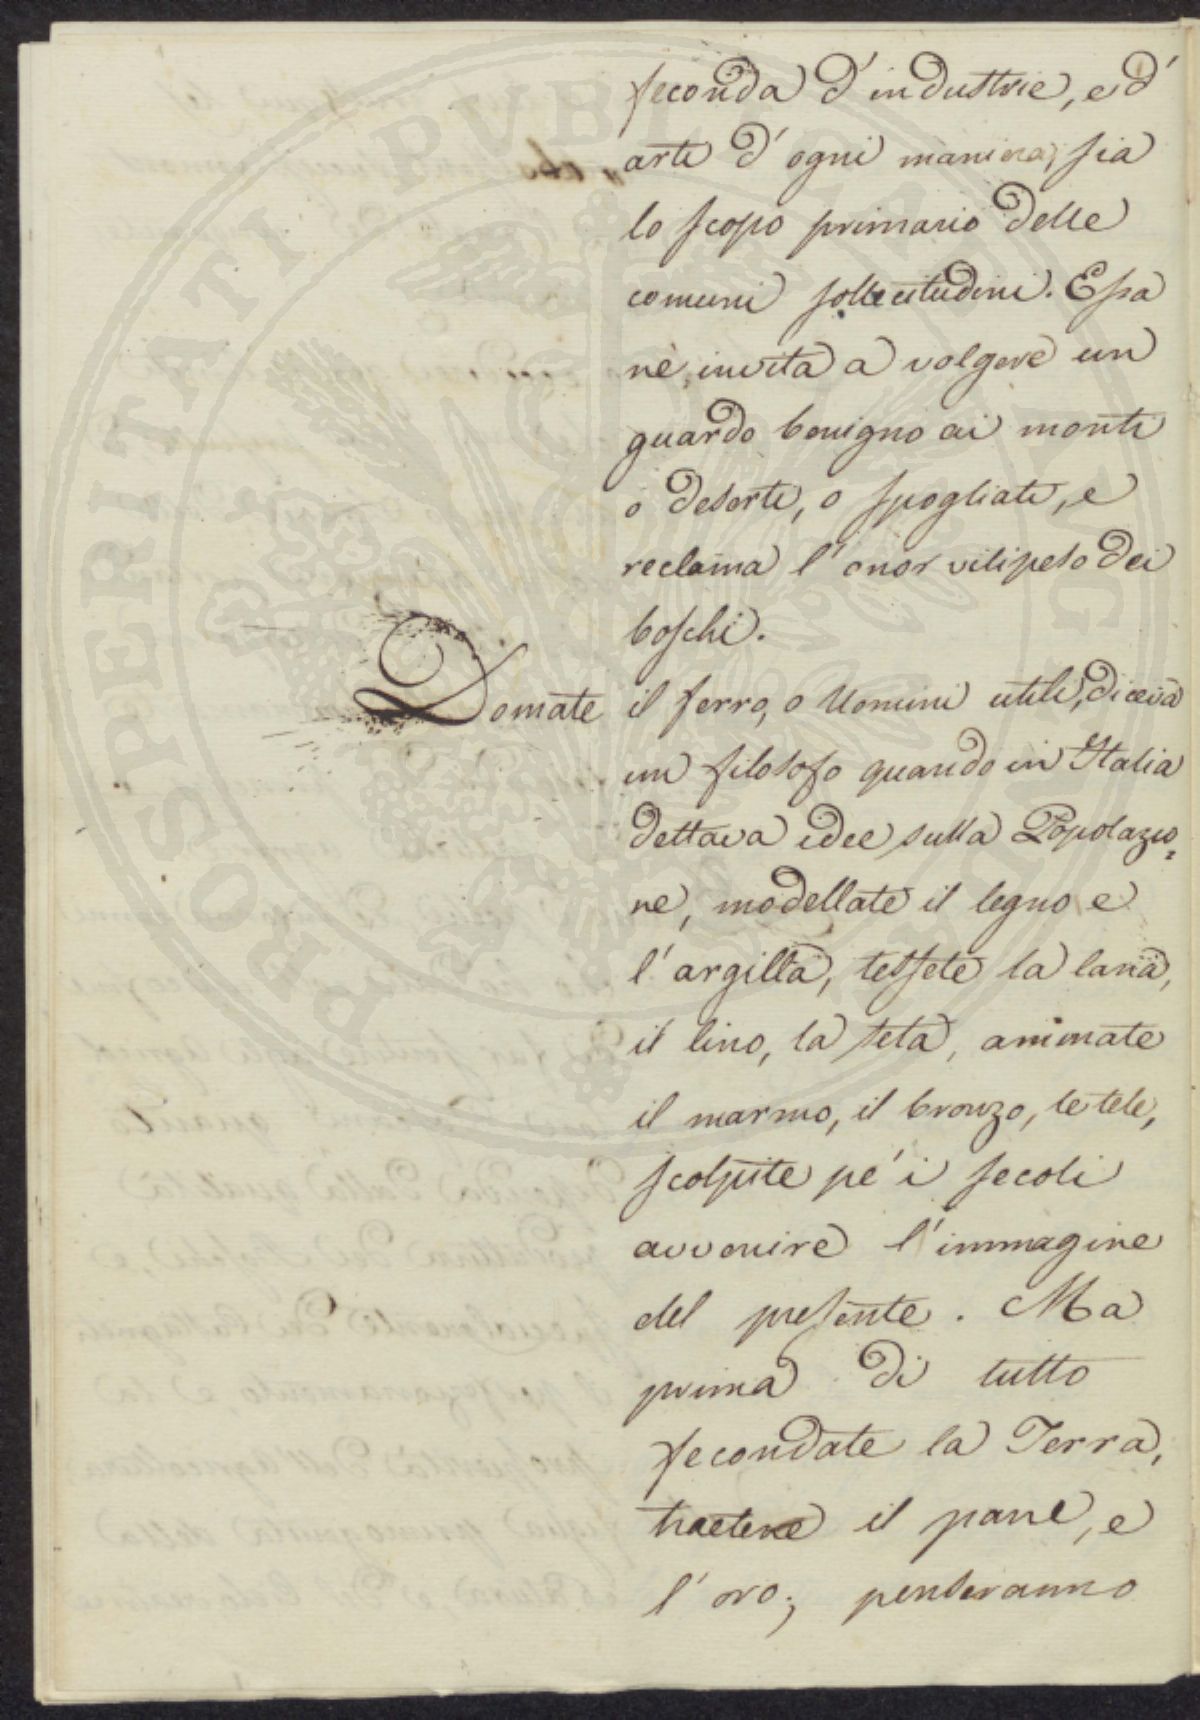 feconda d'industrie, e d'
arti d'ogni maniera, sia
lo scopo primario delle
comuni sollecitudini. Essa
ne invita a volgere un
guardo benigno ai monti
o deserti, o spogliati, e
reclama l'onor vilipeso dei
boschi.
Domate il ferro, o Uomini utili, diceva
un filosofo quando in Italia
dettava idee sulla Popolazio=
ne, modellate il legno e
l'argilla, tessete la lana,
il lino, la seta, animate
il marmo, il bronzo, le tele,
scolpite pe' i secoli
avvenire l'immagine
del presente. Ma
prima di tutto
fecondate la Terra,
traetene il pane, e
l'oro; penseranno
PROSPERITATI PUBLICAE AUGENDAE